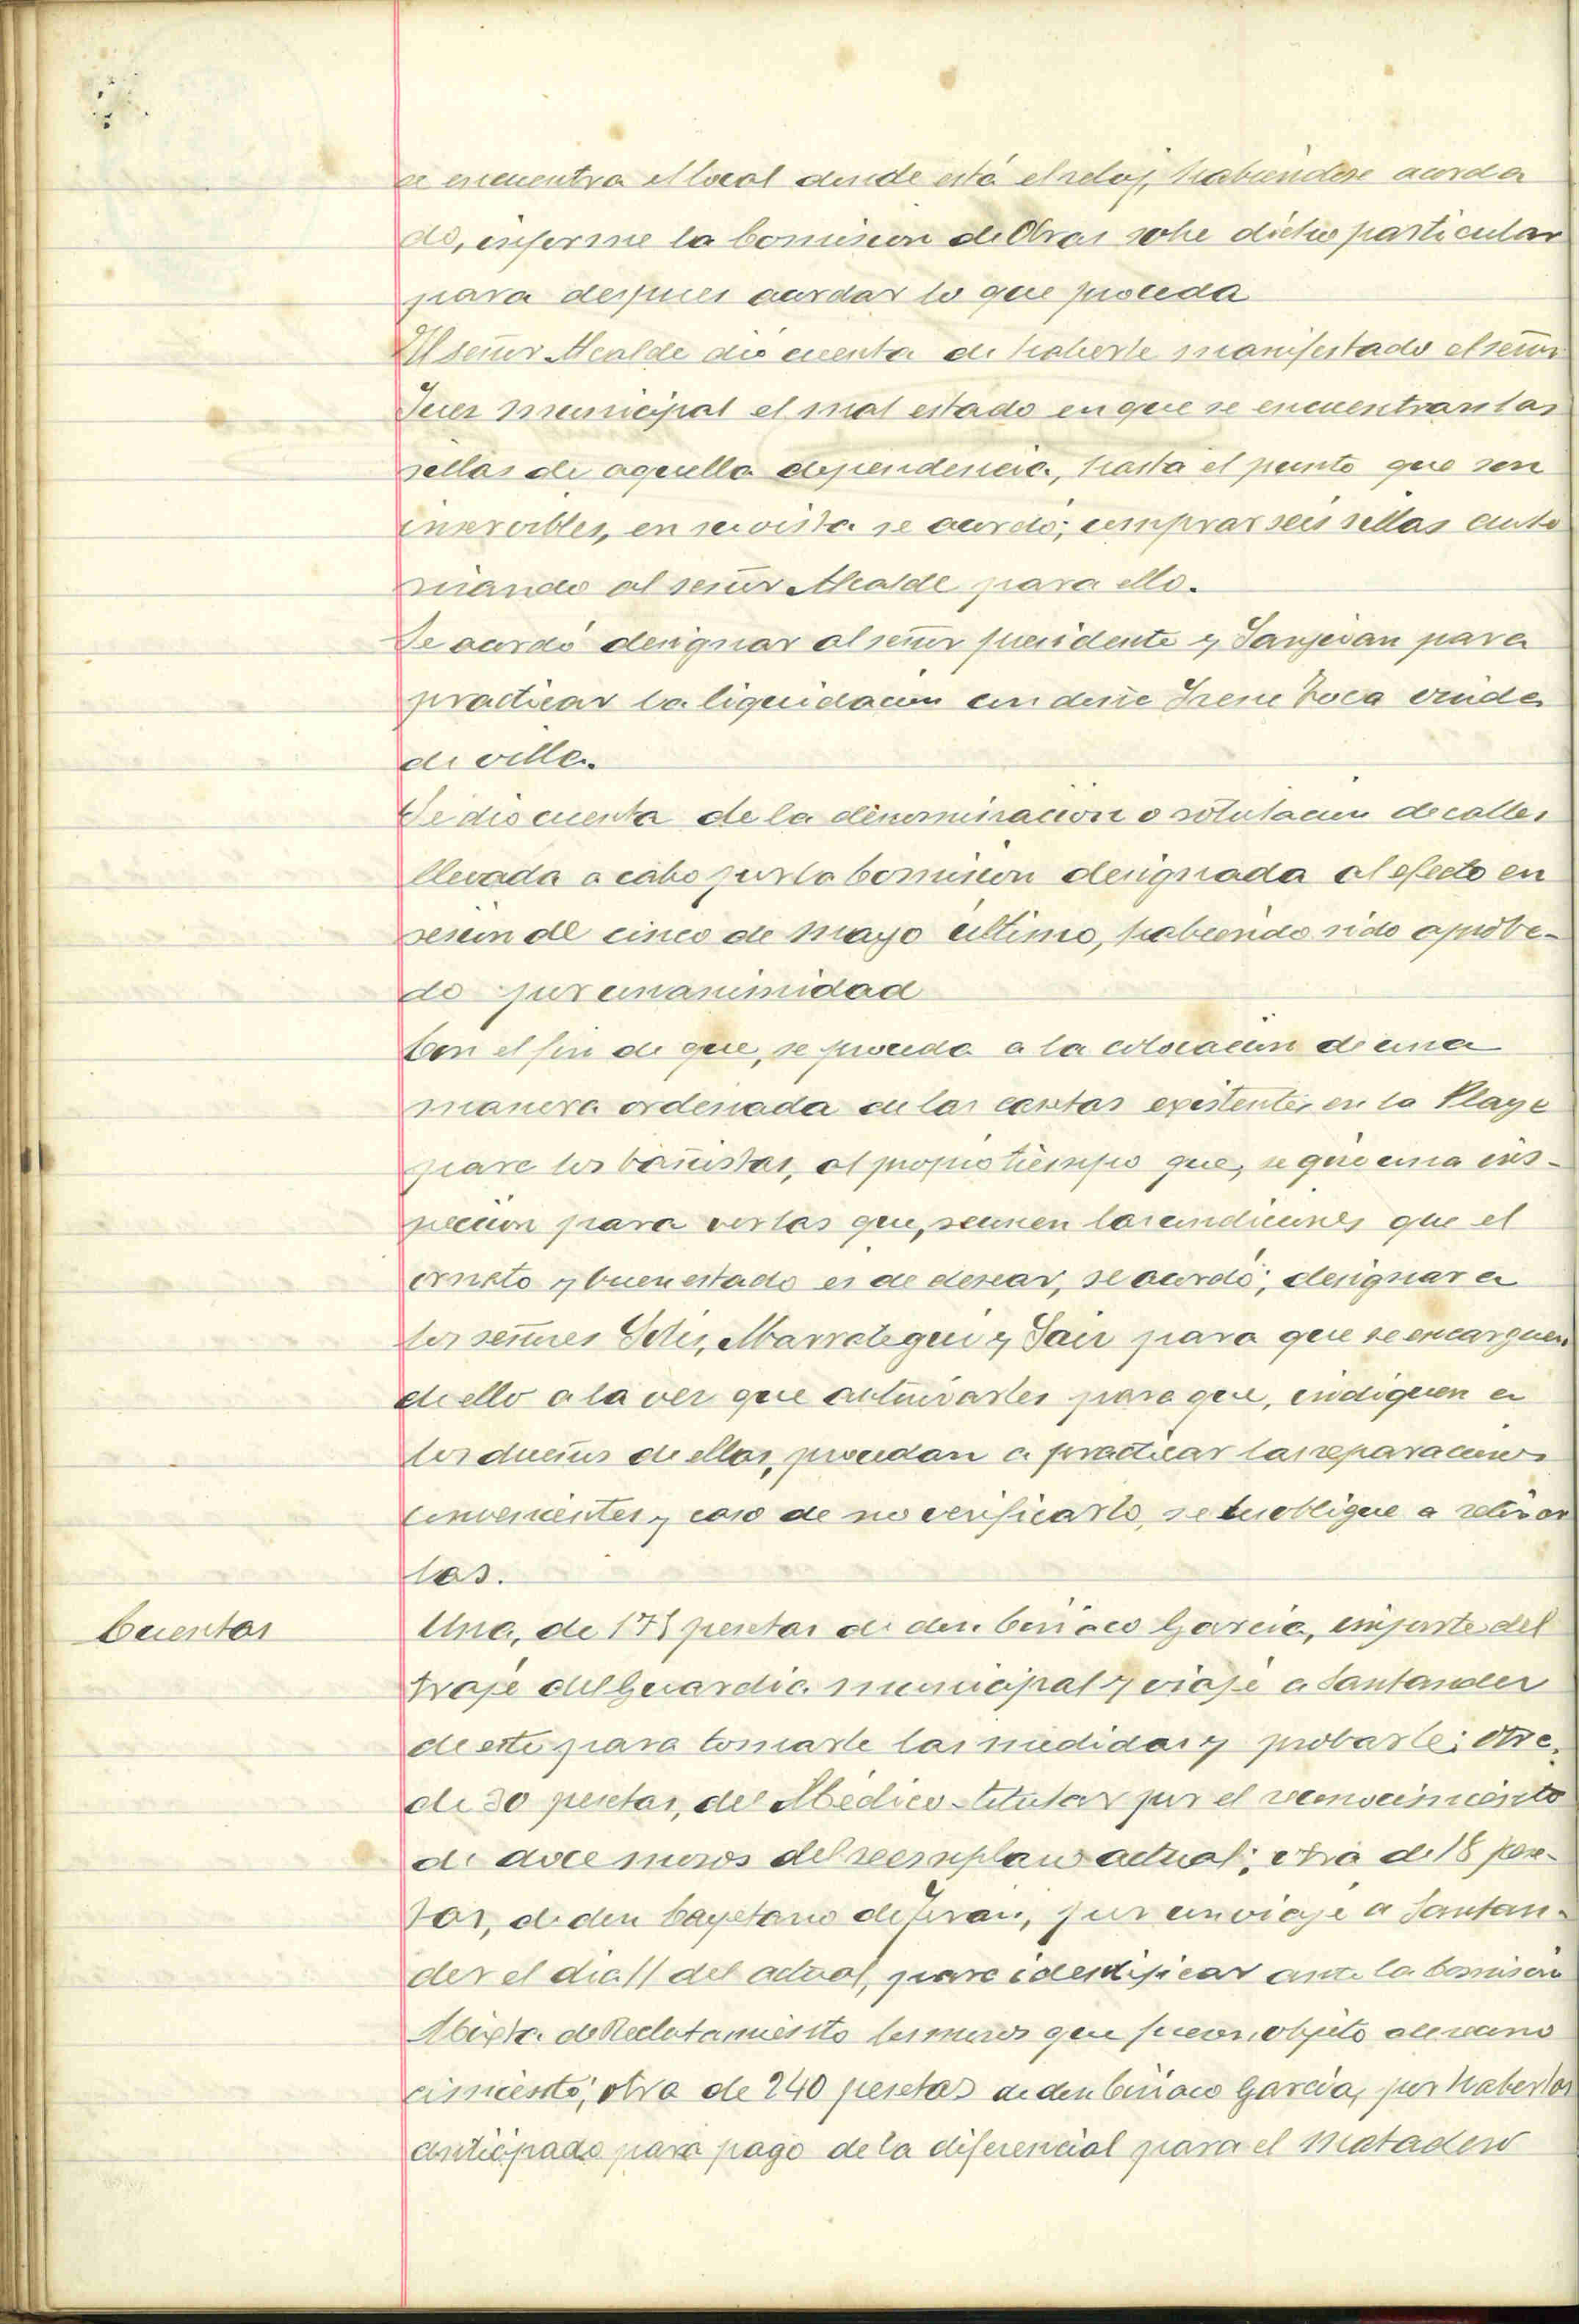 se encuentra el local donde está el reloj, habiéndose acorda
do, informe la Comision de Obras sobre dicho particular
para despues acordar lo que proceda
El señor Alcalde dió cuenta de haberle manifestado el señor
Juez municipal el mal estado en que se encuentran las
sillas de aquella dependencia, hasta el punto que son
inservibles, en su vista se acordó; comprar seis sillas auto
rizando al señor Alcalde para ello.
Se acordó designar al señor presidente y Sanjuan para
practicar la liquidacion con doña Irene Roca viuda
de villa.
Se dio cuenta de la denominacion o rotulacion de calles
llevada a cabo por la Comision designada al efecto en
sesion del cinco de Mayo último, habiendo sido aproba-
do por unanimidad
Con el fin de que, se proceda a la colocacion de una
manera ordenada en las casetas existentes en la Playa
para los bañistas, al propio tiempo que, se gire una ins-
peccion para ver las que, reunen las condiciones que el
ornato y buen estado es de desear, se acordó; designar a
los señores Solis, Marrategui y Saiz para que se encarguen
de ello a la vez que autorizarles para que, indiquen a
los dueños de ellas, procedan a practicar las reparaciones
convenientes y caso de no verificarlo, se les obligue a retirar
las.
Cuentas
Una, de 175 pesetas de don Ciriaco Garcia, importe del
traje del Guardia municipal y viaje a Santander
de este para tomarle las medidas y probarle; otra,
de 30 pesetas, del Médico-titular por el reconocimiento
de doce mozos del reemplazo actual; otra de 18 pese-
tas, de don Cayetano de Teran, por un viaje a Santan-
der el dia 11 del actual, para identificar ante la Comision
Mixta de Reclutamiento los mozos que fueron objeto de recono
cimiento; otra de 240 pesetas de don Ciriaco Garcia, por haberlas
anticipado para pago de la diferencial para el Matadero